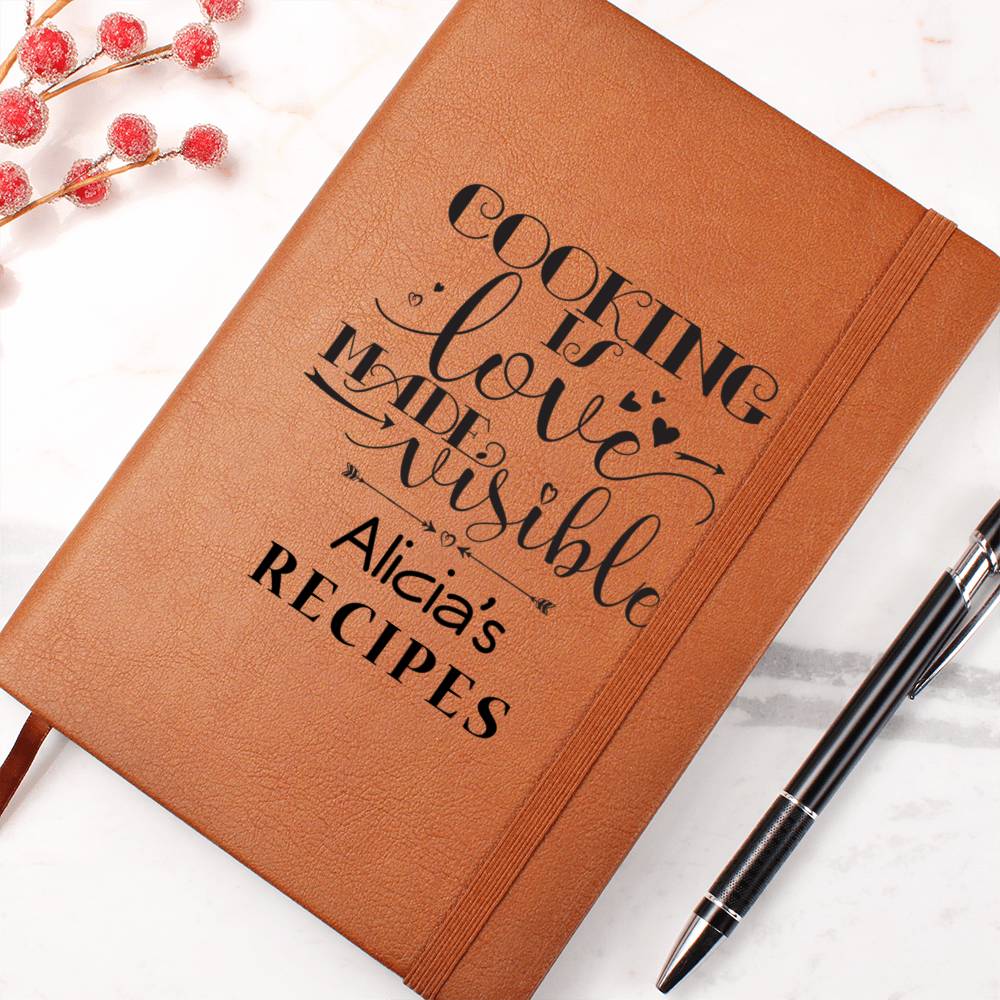 COOKING
IS
love
MADE
visible
Alicia's
RECIPES